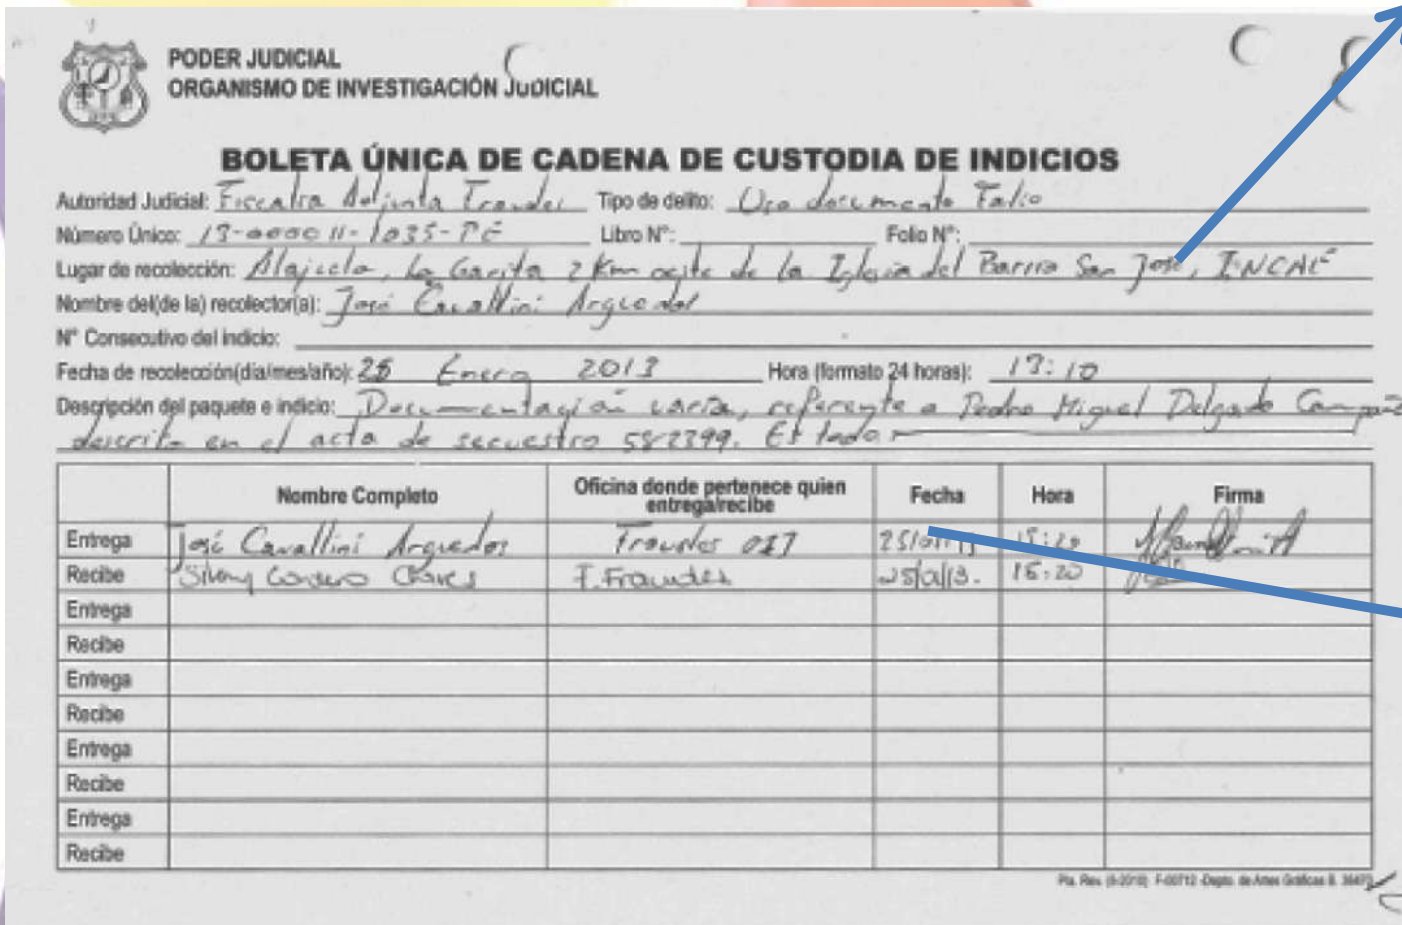 PODER JUDICIAL
ORGANISMO DE INVESTIGACIÓN JUDICIAL
BOLETA ÚNICA DE CADENA DE CUSTODIA DE INDICIOS
Autoridad Judicial: Fiscalía Adjunta Fraudes Tipo de delito: Uso documento Falso
Número Único: 13-000011-1035-PE Libro N°: Folio N°:
Lugar de recolección: Alajuela, La Garita 2 Km oeste de la Iglesia del Barrio San José, INCAE
Nombre del(de la) recolector(a): José Cavallini Arguedas
N° Consecutivo del indicio:
Fecha de recolección(día/mes/año): 25 Enero 2013 Hora (formato 24 horas): 13:10
Descripción del paquete e indicio: Documentación varia, referente a Pedro Miguel Delgado
descrita en el acta de secuestro 582399. Es todo.
Nombre Completo Oficina donde pertenece quien entrega/recibe Fecha Hora Firma
Entrega José Cavallini Arguedas Fraudes OIJ
Recibe Cordero Chaves F. Fraudes 16:20
Entrega
Recibe
Entrega
Recibe
Entrega
Recibe
Entrega
Recibe
F-00712 -Depto. de Artes Gráficas